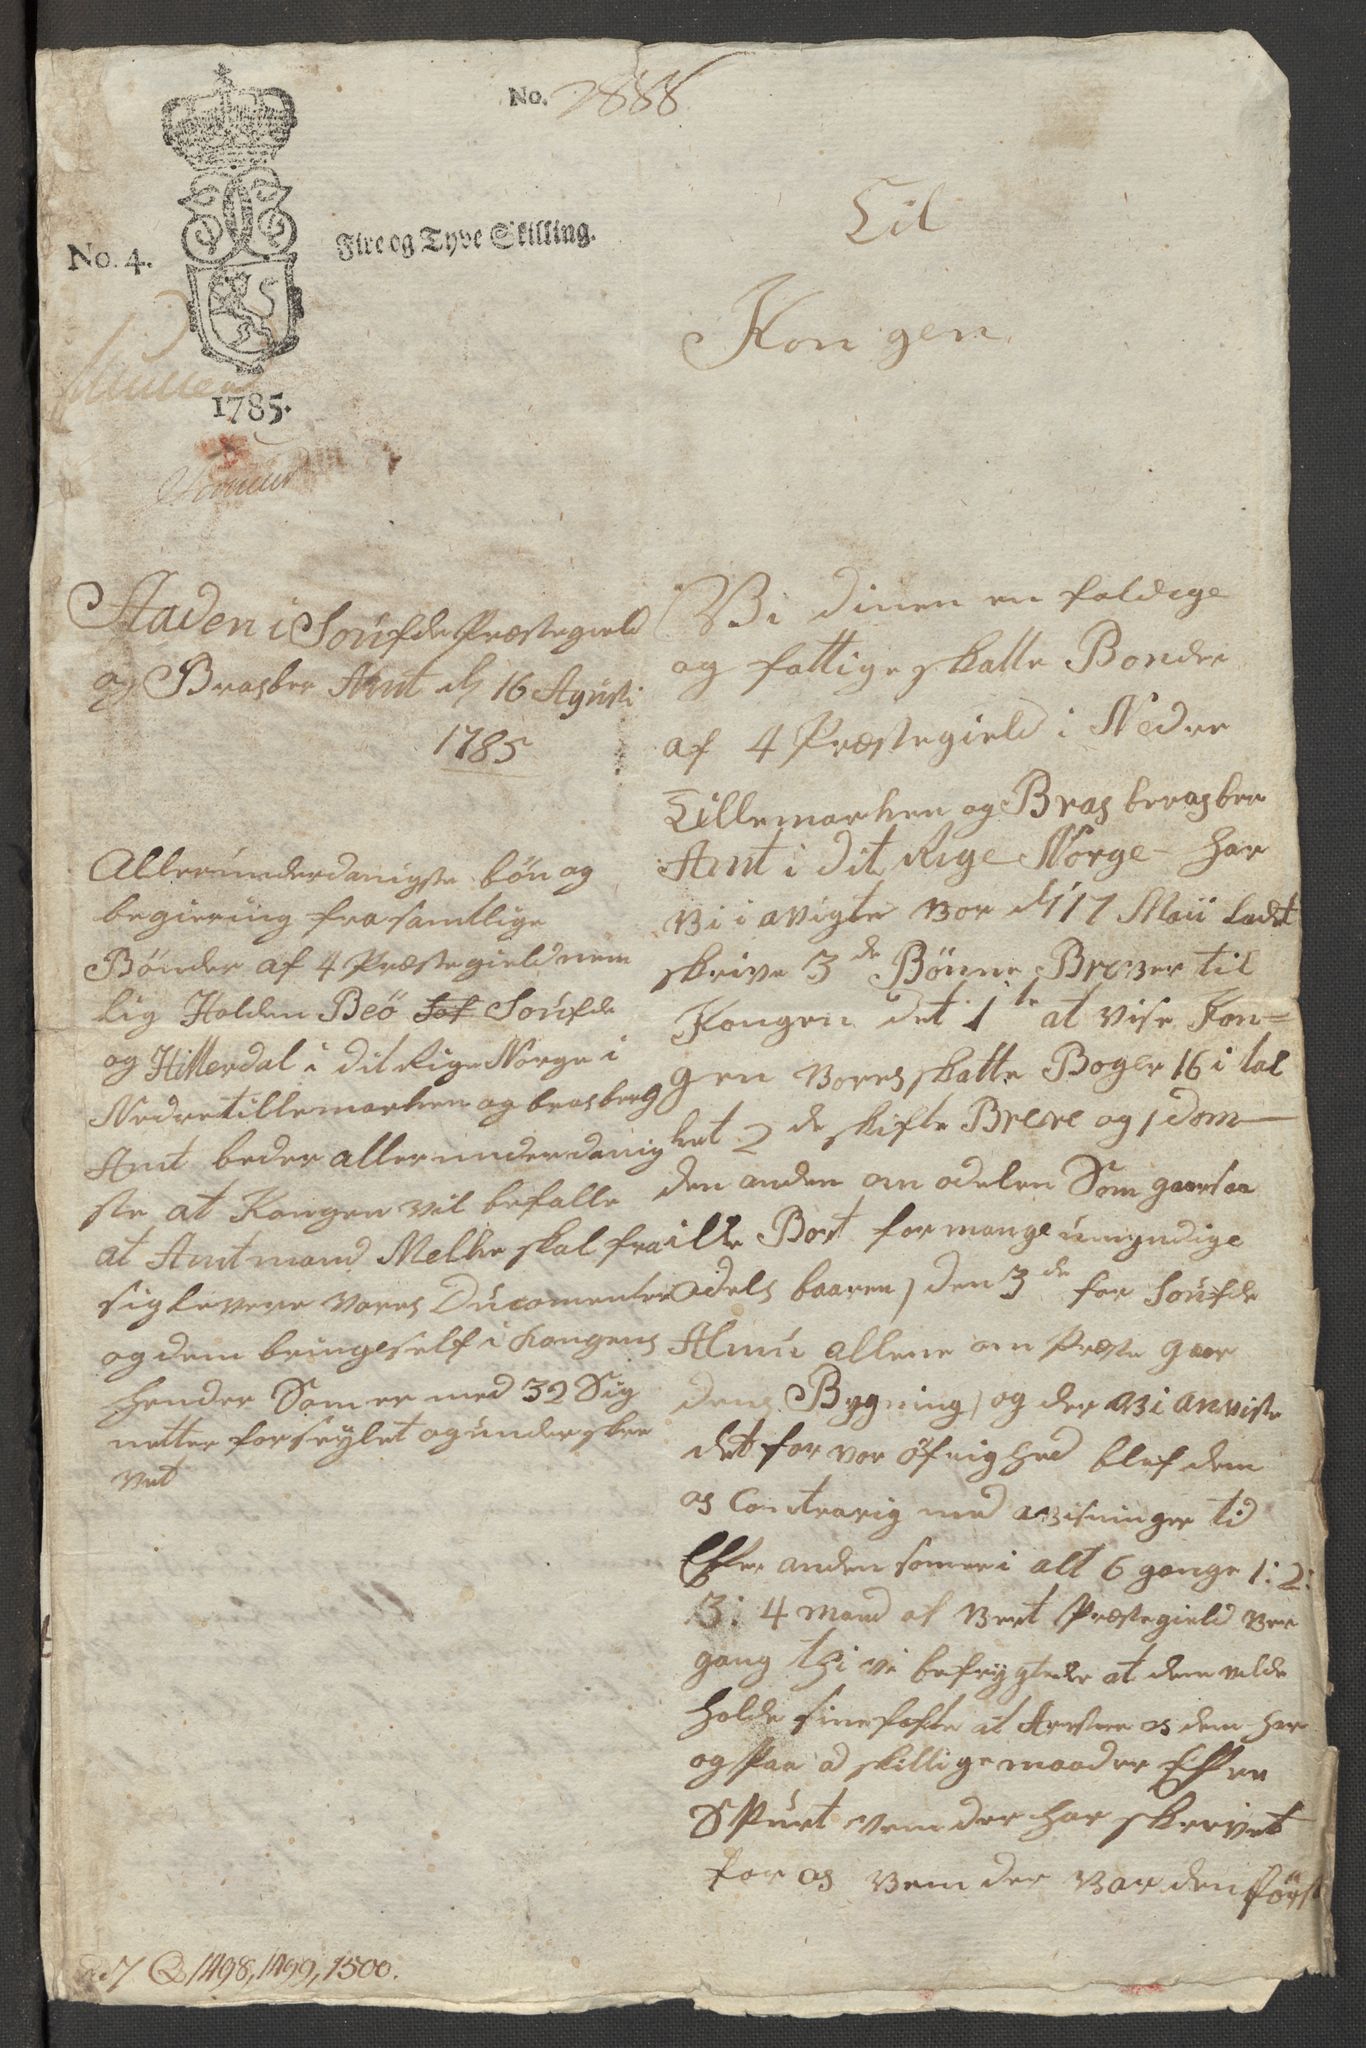 No. 2888
No. 4.
Fire og Tyve Skilling.
1785.
Til
Kongen
Staden i Soufde Præstegield
og Brasber Amt d 16 Agusti
1785
Allerunderdanigste bøn og
begiering fra samtlige
Bønder af 4 Præstegield nem
lig Holden Beö Soufde
og Hitterdal i dit Rige Norge i
Nedretillemarken og brasberg
Amt beder allerunderdanig
ste at Kongen vil befalle
at Amtmand Melke skal fra
sig levere vores Ducomenter
og dem bringe self i Kongens
hender Som er med 32 Sig
netter forseylet og underskre
vet
Vi dinen en foldige
og fattige skatte Bonder
af 4 Præstegield i Nedre
Tillemarken og Bras berasber
Amt i dit Rige Norge har
vi i avigte vor d 17 Maii ladet
skrive 3de Bönne Brever til
Kongen det 1te at vise Kon=
gen vores skatte Boger 16 i tal
let 2de skifte Breve og 1 dom
den anden om odelen Som gaar saa
ille Bort for mange umyndige
odels baaren, den 3de for Soufde
Almu allene om Præste gaar
dens Bygning, og der vi anviste
det for vor öfrighed blef dem
os Contrarig med avisninger tid
Efter anden som er i alt 6 gange 1: 2:
3: 4 mand af vert Præstegield ver
gang thi vi befrygtede at dem vilde
holde sine at Arstere os dem har
og Paa ad skillige maader Efter
Spurt vem der har skervet
for os vem der var den först
No. 7 1498, 1499, 1500.